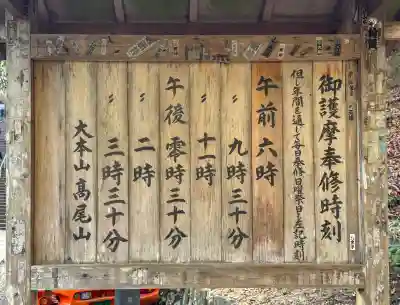 御護摩奉修時刻
但し年間を通して毎日奉修日曜祭日も左記時刻
午前六時
〃九時三十分
〃十一時
午後零時三十分
〃二時
〃三時三十分
大本山髙尾山